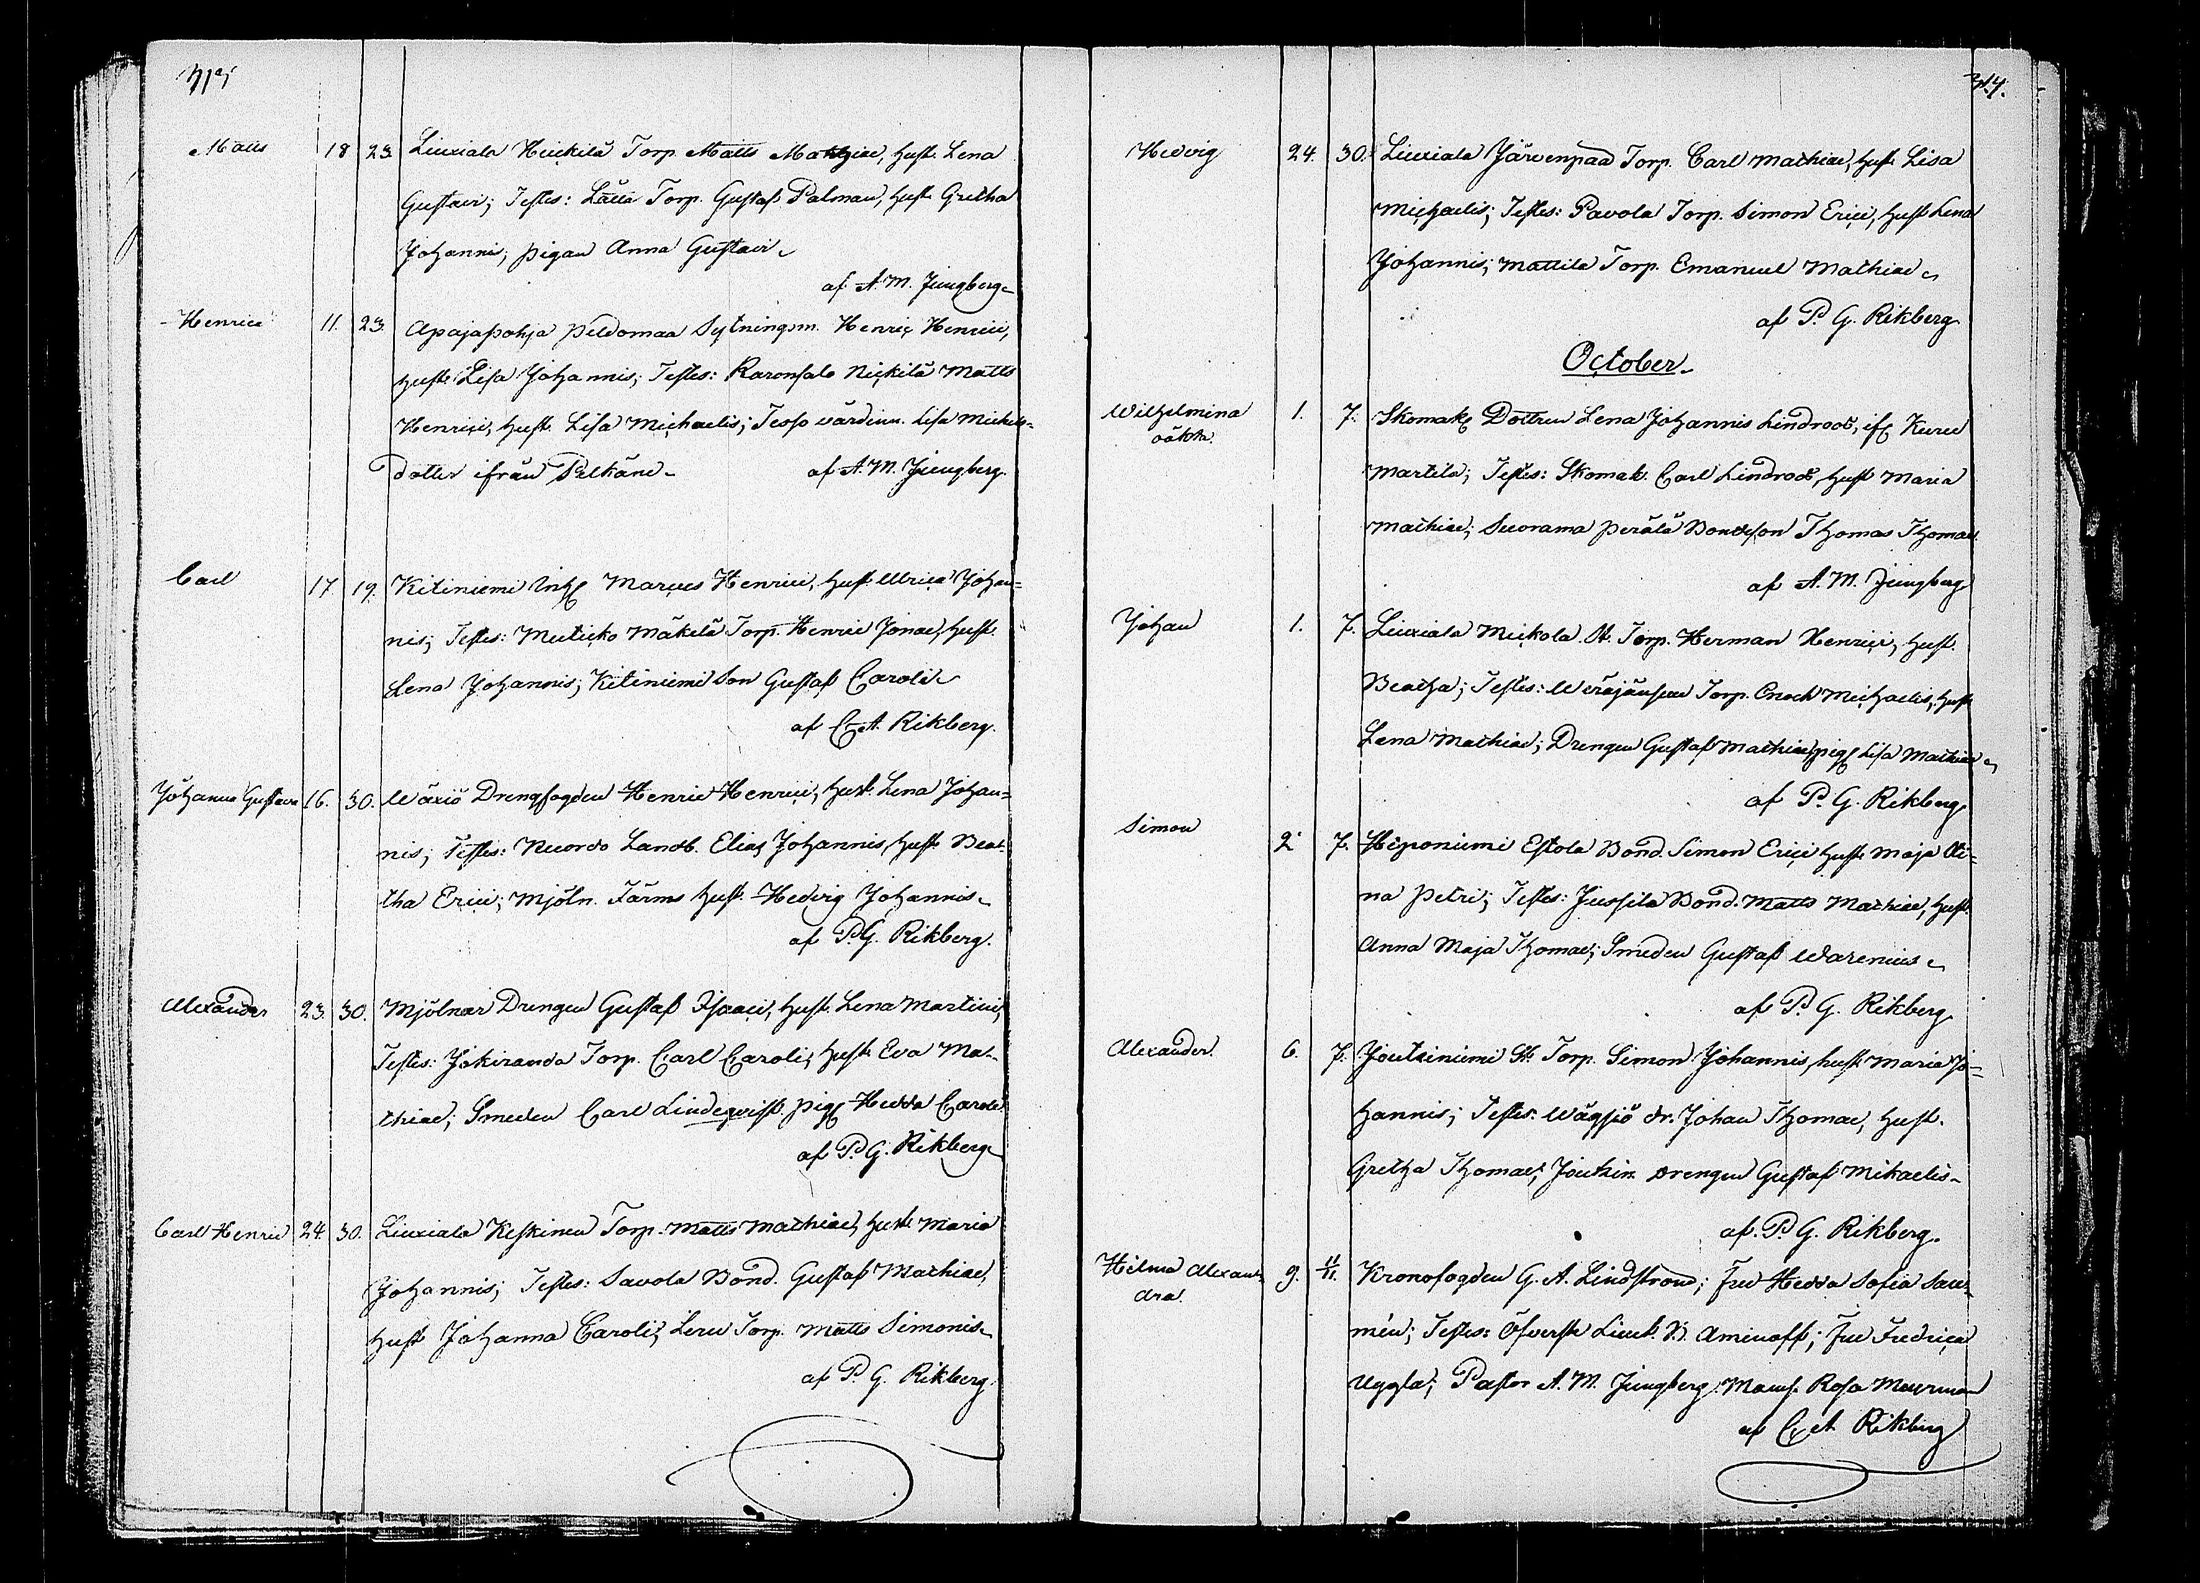 Matts 18 23. Liuxiala Huickila Torp. Matts Mathiae, hust. Lena
Gustavi; Testes: Torp. Gustaf Palman, hust. Gretha
Johannis, pigan Anna Gustavi
af A. M. Jungberg
Henric 11. 23. Apajapohja Peldomaa Sytningsm. Henric Henrici,
hust. Lisa Johannis; Testes: Nickilä Matts
Henrici, hust. Lisa Michaelis; värdinn. Lisa Mickels=
dotter ifrån Pelkäne. af A. M. Jungberg.
Carl 17. 19. Kitiniemi Inh. Marcus Henrici, hust. Ulrica Johan=
nis; Testes: Muticko Mäkelä Torp. Henric Jonae, hust.
Lena Johannis; Kitiniemi Son Gustaf Caroli
af C. A. Rikberg.
Johanna Gustava 16. 30. Wäxiö Drengfogden Henric Henrici, hust. Lena Johan=
nis; Testes: Landb. Elias Johannis, hust. Bea-
tha Erici; Mjöln. Färms hust. Hedvig Johannis
af P. G. Rikberg.
Alexander 23. 30. Mjölnar Drengen Gustaf Isaaci, hust. Lena Martini,
Testes: Jokiranda Torp. Carl Caroli, hust. Eva Ma-
thiae; Smeden Carl Lindeqvist, pig. Hedda Caroli
af P. G. Rikberg
Carl Henric 24. 30. Liuxiala Keskinen Torp. Matts Mathiae, hust. Maria
Johannis; Testes: Savola Bond. Gustaf Mathiae,
hust. Johanna Caroli; Torp. Matts Simonis
af P. G. Rikberg.
Hedvig 24. 30. Liuxiala Järvenpää Torp. Carl Mathiae, hust. Lisa
Michaelis; Testes: Pavola Torp. Simon Erici, hust. Lena
Johannis; Mattila Torp. Emanuel Mathiae
af P. G. Rikberg
October.
Wilhelmina 1. 7. Skomak. Dottren Lena Johannis Lindroos, ifr. Kuru
oäkta.
Martila; Testes: Skomak. Carl Lindroos, hust. Maria
Mathiae; Suorama Perälä Bondeson Thomas Thomae
af A. M. Jungberg
Johan 1. 7. Liuxiala Muckola St. Torp. Herman Henrici, hust.
Beatha; Testes: Torp. Enoch Michaelis, hust.
Lena Mathiae; Drengen Gustaf Mathiae, pig. Lisa Mathiae
af P. G. Rikberg
Simon 2. 7. Heponiemi Estola Bond. Simon Erici hust. Maja Sti=
na Petri; Testes: Jussila Bond. Matts Mathiae, hust.
Anna Maja Thomae; Smeden Gustaf Warenius
af P. G. Rikberg
Alexander. 6. 7. Joutsiniemi St. Torp. Simon Johannis, hust. Maria Jo=
hannis; Testes: Wägsjö dr. Johan Thomae, hust.
Gretha Thomae; Joutsin. Drengen Gustaf Mikaelis
af P. G. Rikberg.
Hilma Alexan= 9. Kronofogden G. A. Lindström; Fru Hedda Sofia
dra.
mén; Testes: Öfverste Lieut. B. Aminoff; Fru Fredrica
Uggla; Pastor A. M. Jungberg Mams. Rosa Meurman
af C. A. Rikberg